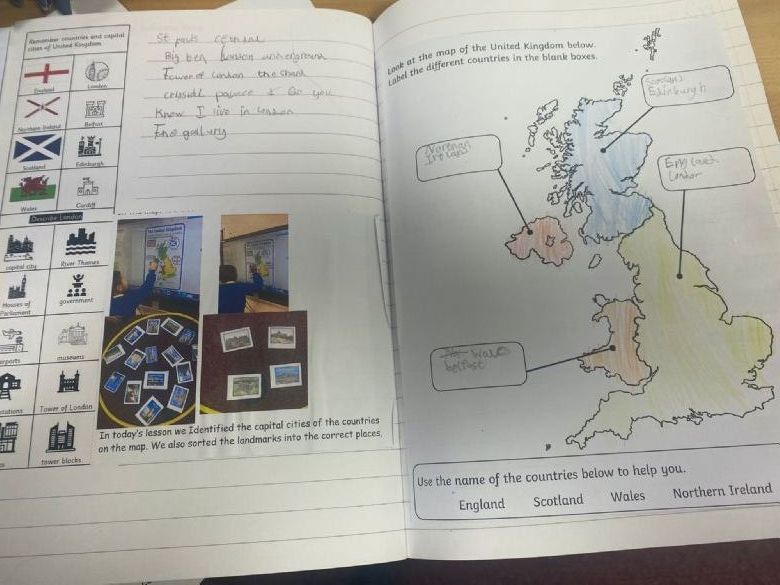 Remember countries and capital
cities of United Kingdom
England
London
Northern Ireland
Belfast
Scotland
Edinburgh
Wales
Cardiff
Describe London
capital city
River Thames
Houses of
Parliament
government
museums
Tower of London
tower blocks
St pauls
Big ben London underground
Tower of London the shard
palace
Know I live in London
In today's lesson we Identified the capital cities of the countries
on the map. We also sorted the landmarks into the correct places.
Look at the map of the United Kingdom below.
Label the different countries in the blank boxes.
Edinburgh
London
Wales
belfast
Use the name of the countries below to help you.
England Scotland Wales Northern Ireland